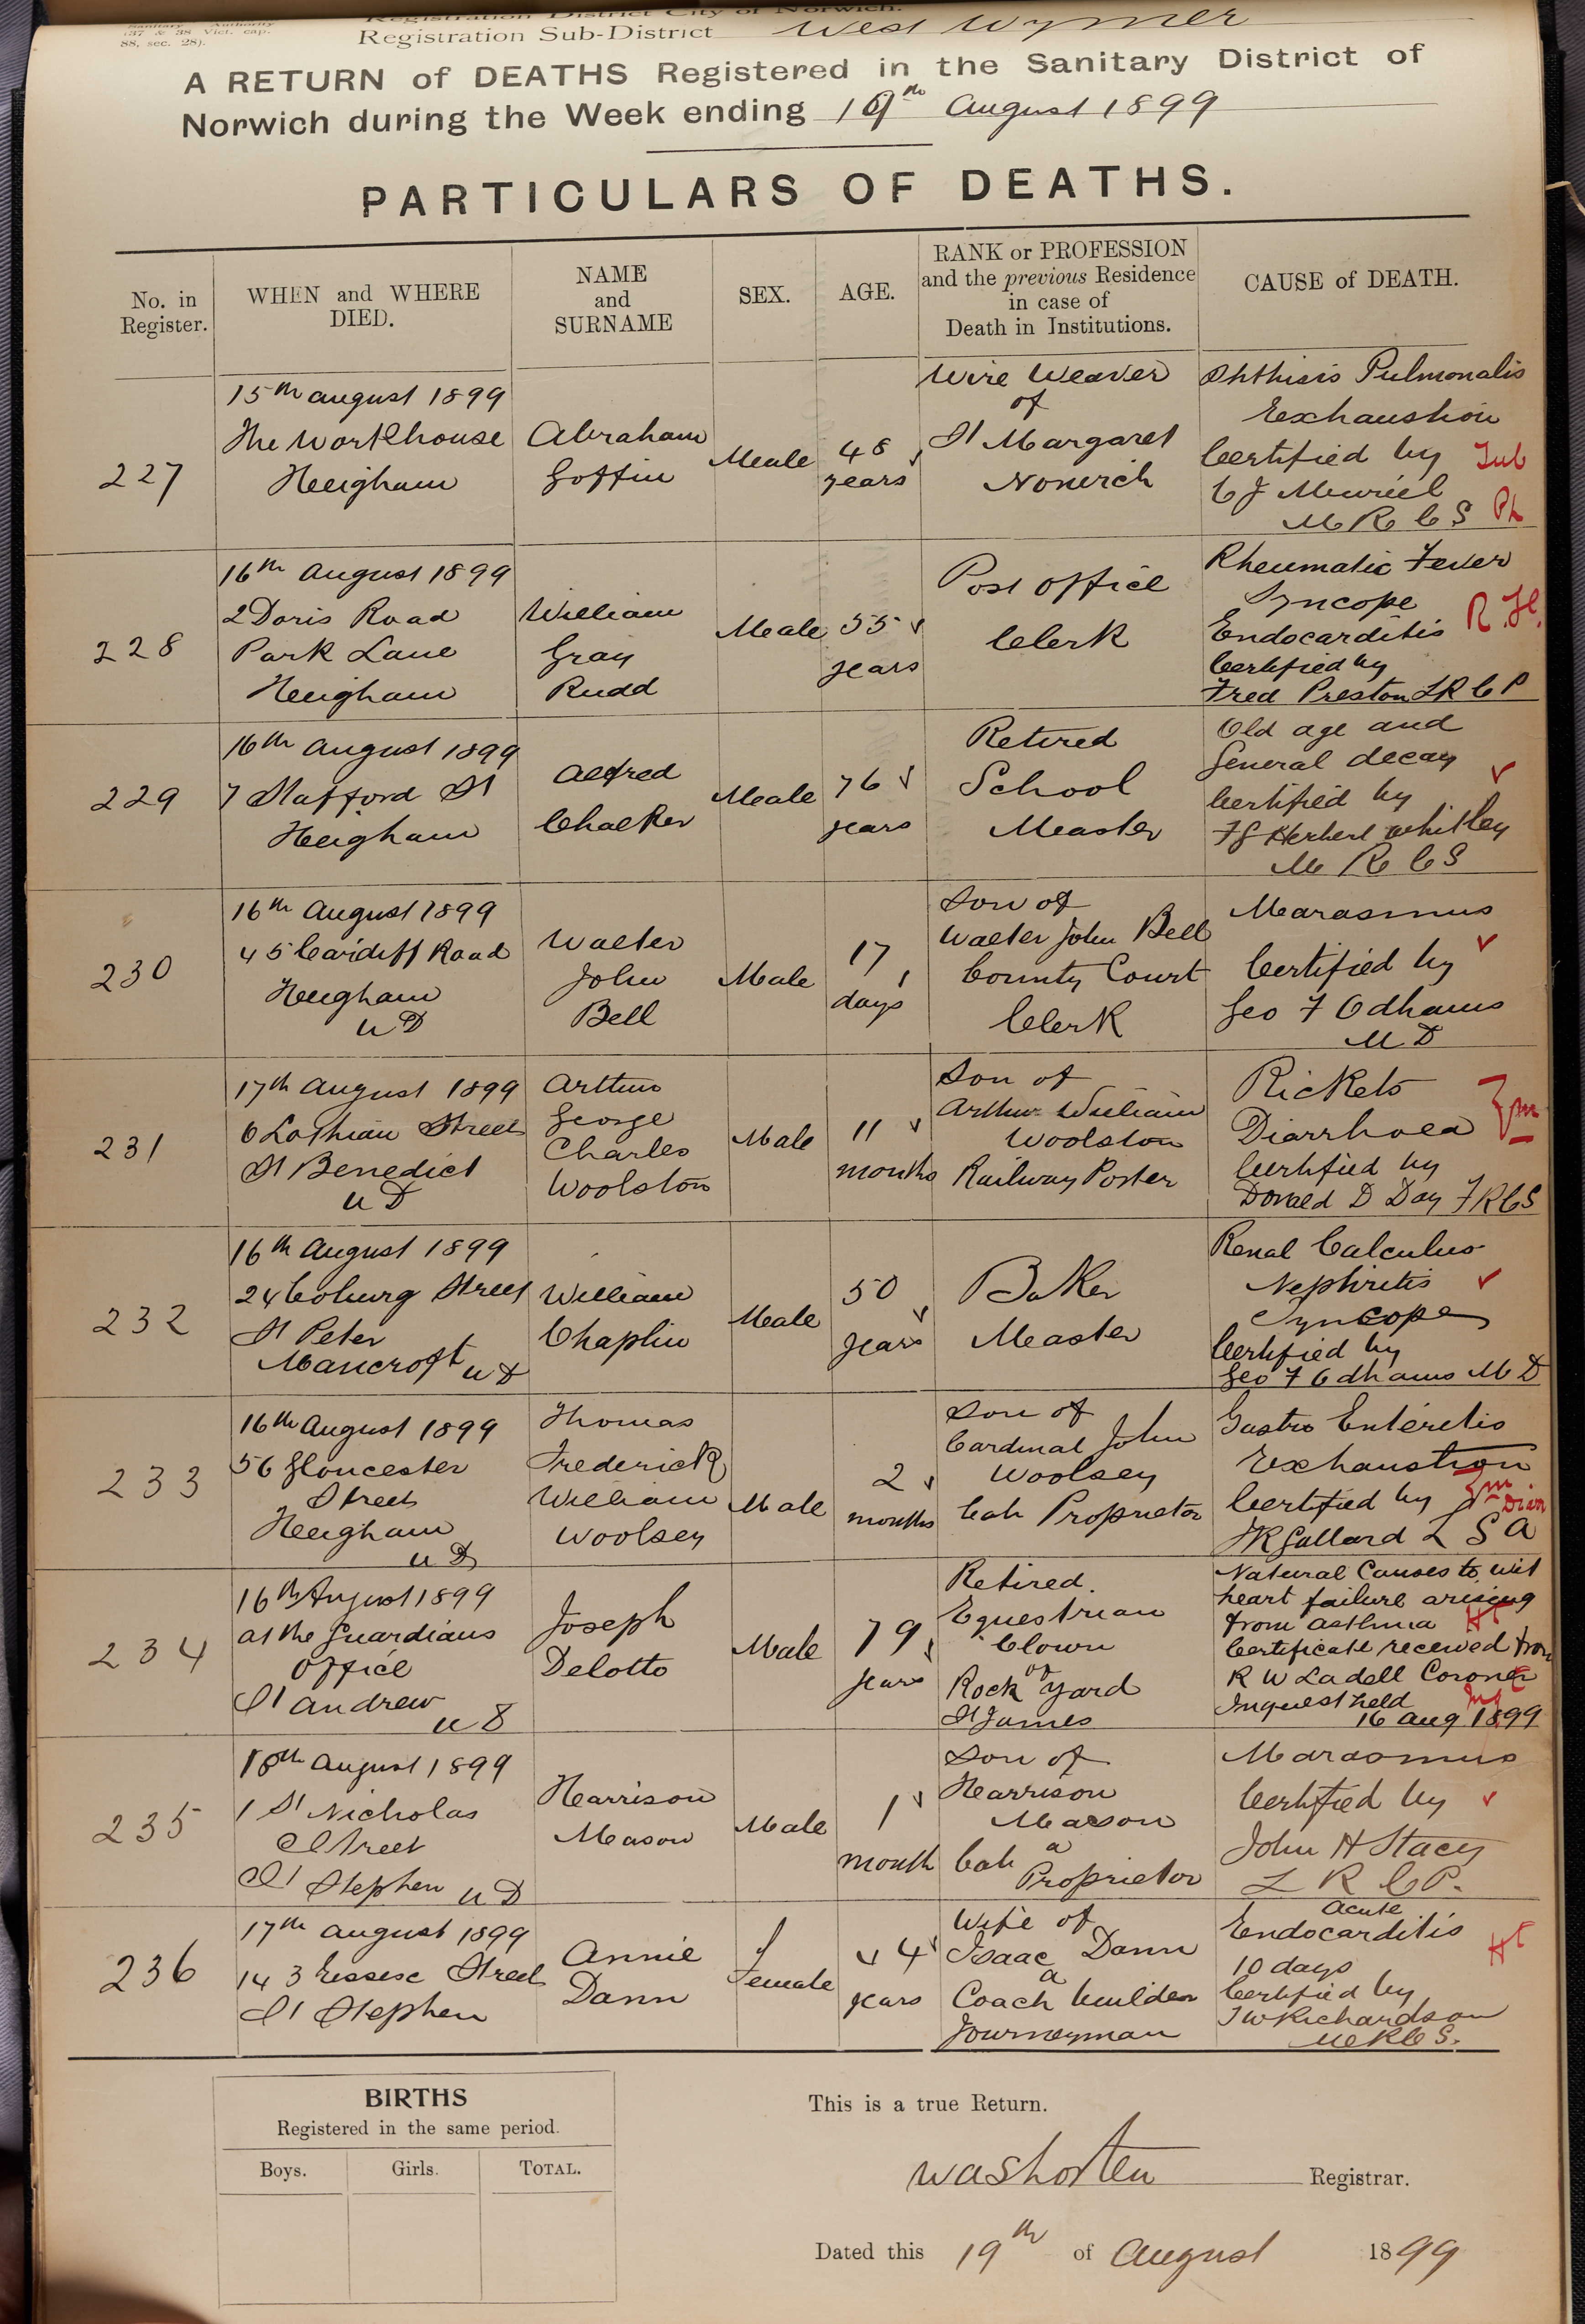 Sanitary Authority
(37 & 38 Vict. cap.
88, sec. 28).
Registration District City of Norwich.
Registration Sub-District West Wymer
A RETURN of DEATHS Registered in the Sanitary District of
Norwich during the Week ending 19th August 1899
PARTICULARS OF DEATHS.
No. in Register.
WHEN and WHERE DIED.
NAME and SURNAME
SEX.
AGE.
RANK or PROFESSION and the previous Residence in case of Death in Institutions.
CAUSE of DEATH.
227
15th August 1899
The Workhouse
Heigham
Abraham
Goffin
Male
48
years
Wire Weaver
of
St Margaret
Norwich
Phthisis Pulmonalis
Exhaustion
Certified by
C J Muriel
M R C S
Tub
Ph
228
16th August 1899
2 Doris Road
Park Lane
Heigham
William
Gray
Rudd
Male
55
years
Post Office
Clerk
Rheumatic Fever
Syncope
Endocarditis
Certified by
Fred Preston L R C P
229
16th August 1899
7 Stafford St
Heigham
Alfred
Chalker
Male
76
years
Retired
School
Master
Old age and
General decay
Certified by
Herbert Whitley
M R C S
230
16th August 1899
45 Cardiff Road
Heigham
u D
Walter
John
Bell
Male
17
days
Son of
Walter John Bell
County Court
Clerk
Marasmus
Certified by
Geo F Odhams
M D
231
17th August 1899
6 Lothian Street
St Benedict
u D
Arthur
George
Charles
Woolston
Male
11
months
Son of
Arthur William
Woolston
Railway Porter
Rickets
Diarrhoea
Certified by
Donald D Day F R C S
Zym
232
16th August 1899
24 Coburg Street
St Peter
Mancroft u D
William
Chaplin
Male
50
years
Baker
Master
Renal Calculus
Nephritis
Syncope
Certified by
Geo F Odhams M D
233
16th August 1899
56 Gloucester
Street
Heigham
u D
Thomas
Frederick
William
Woolsey
Male
2
months
Son of
Cardinal John
Woolsey
Cab Proprietor
Gastro Enteritis
Exhaustion
Certified by
Gallard L S A
Zym
Diar
234
16th August 1899
at the Guardians
Office
St Andrew
u D
Joseph
Delotto
Male
79
years
Retired.
Equestrian
Clown
of
Rock Yard
St James
Natural Causes to wit
heart failure arising
from asthma
Certificate received from
R W Ladell Coroner
Inquest held
16 Aug 1899
Ht
Inq
235
18th August 1899
1 St Nicholas
Street
St Stephen u D
Harrison
Mason
Male
1
month
Son of
Harrison
Mason
a
Cab Proprietor
Marasmus
Certified by
John H Stacy
L R C P.
236
17th August 1899
143 Essex Street
St Stephen
Annie
Dann
Female
years
Wife of
Isaac Dann
a
Coach builder
Journeyman
acute
Endocarditis
10 days
Certified by
T W Richardson
M R C S.
Ht
BIRTHS
Registered in the same period.
Boys.
Girls.
TOTAL.
This is a true Return.
W A Shorten Registrar.
Dated this 19th of August 1899